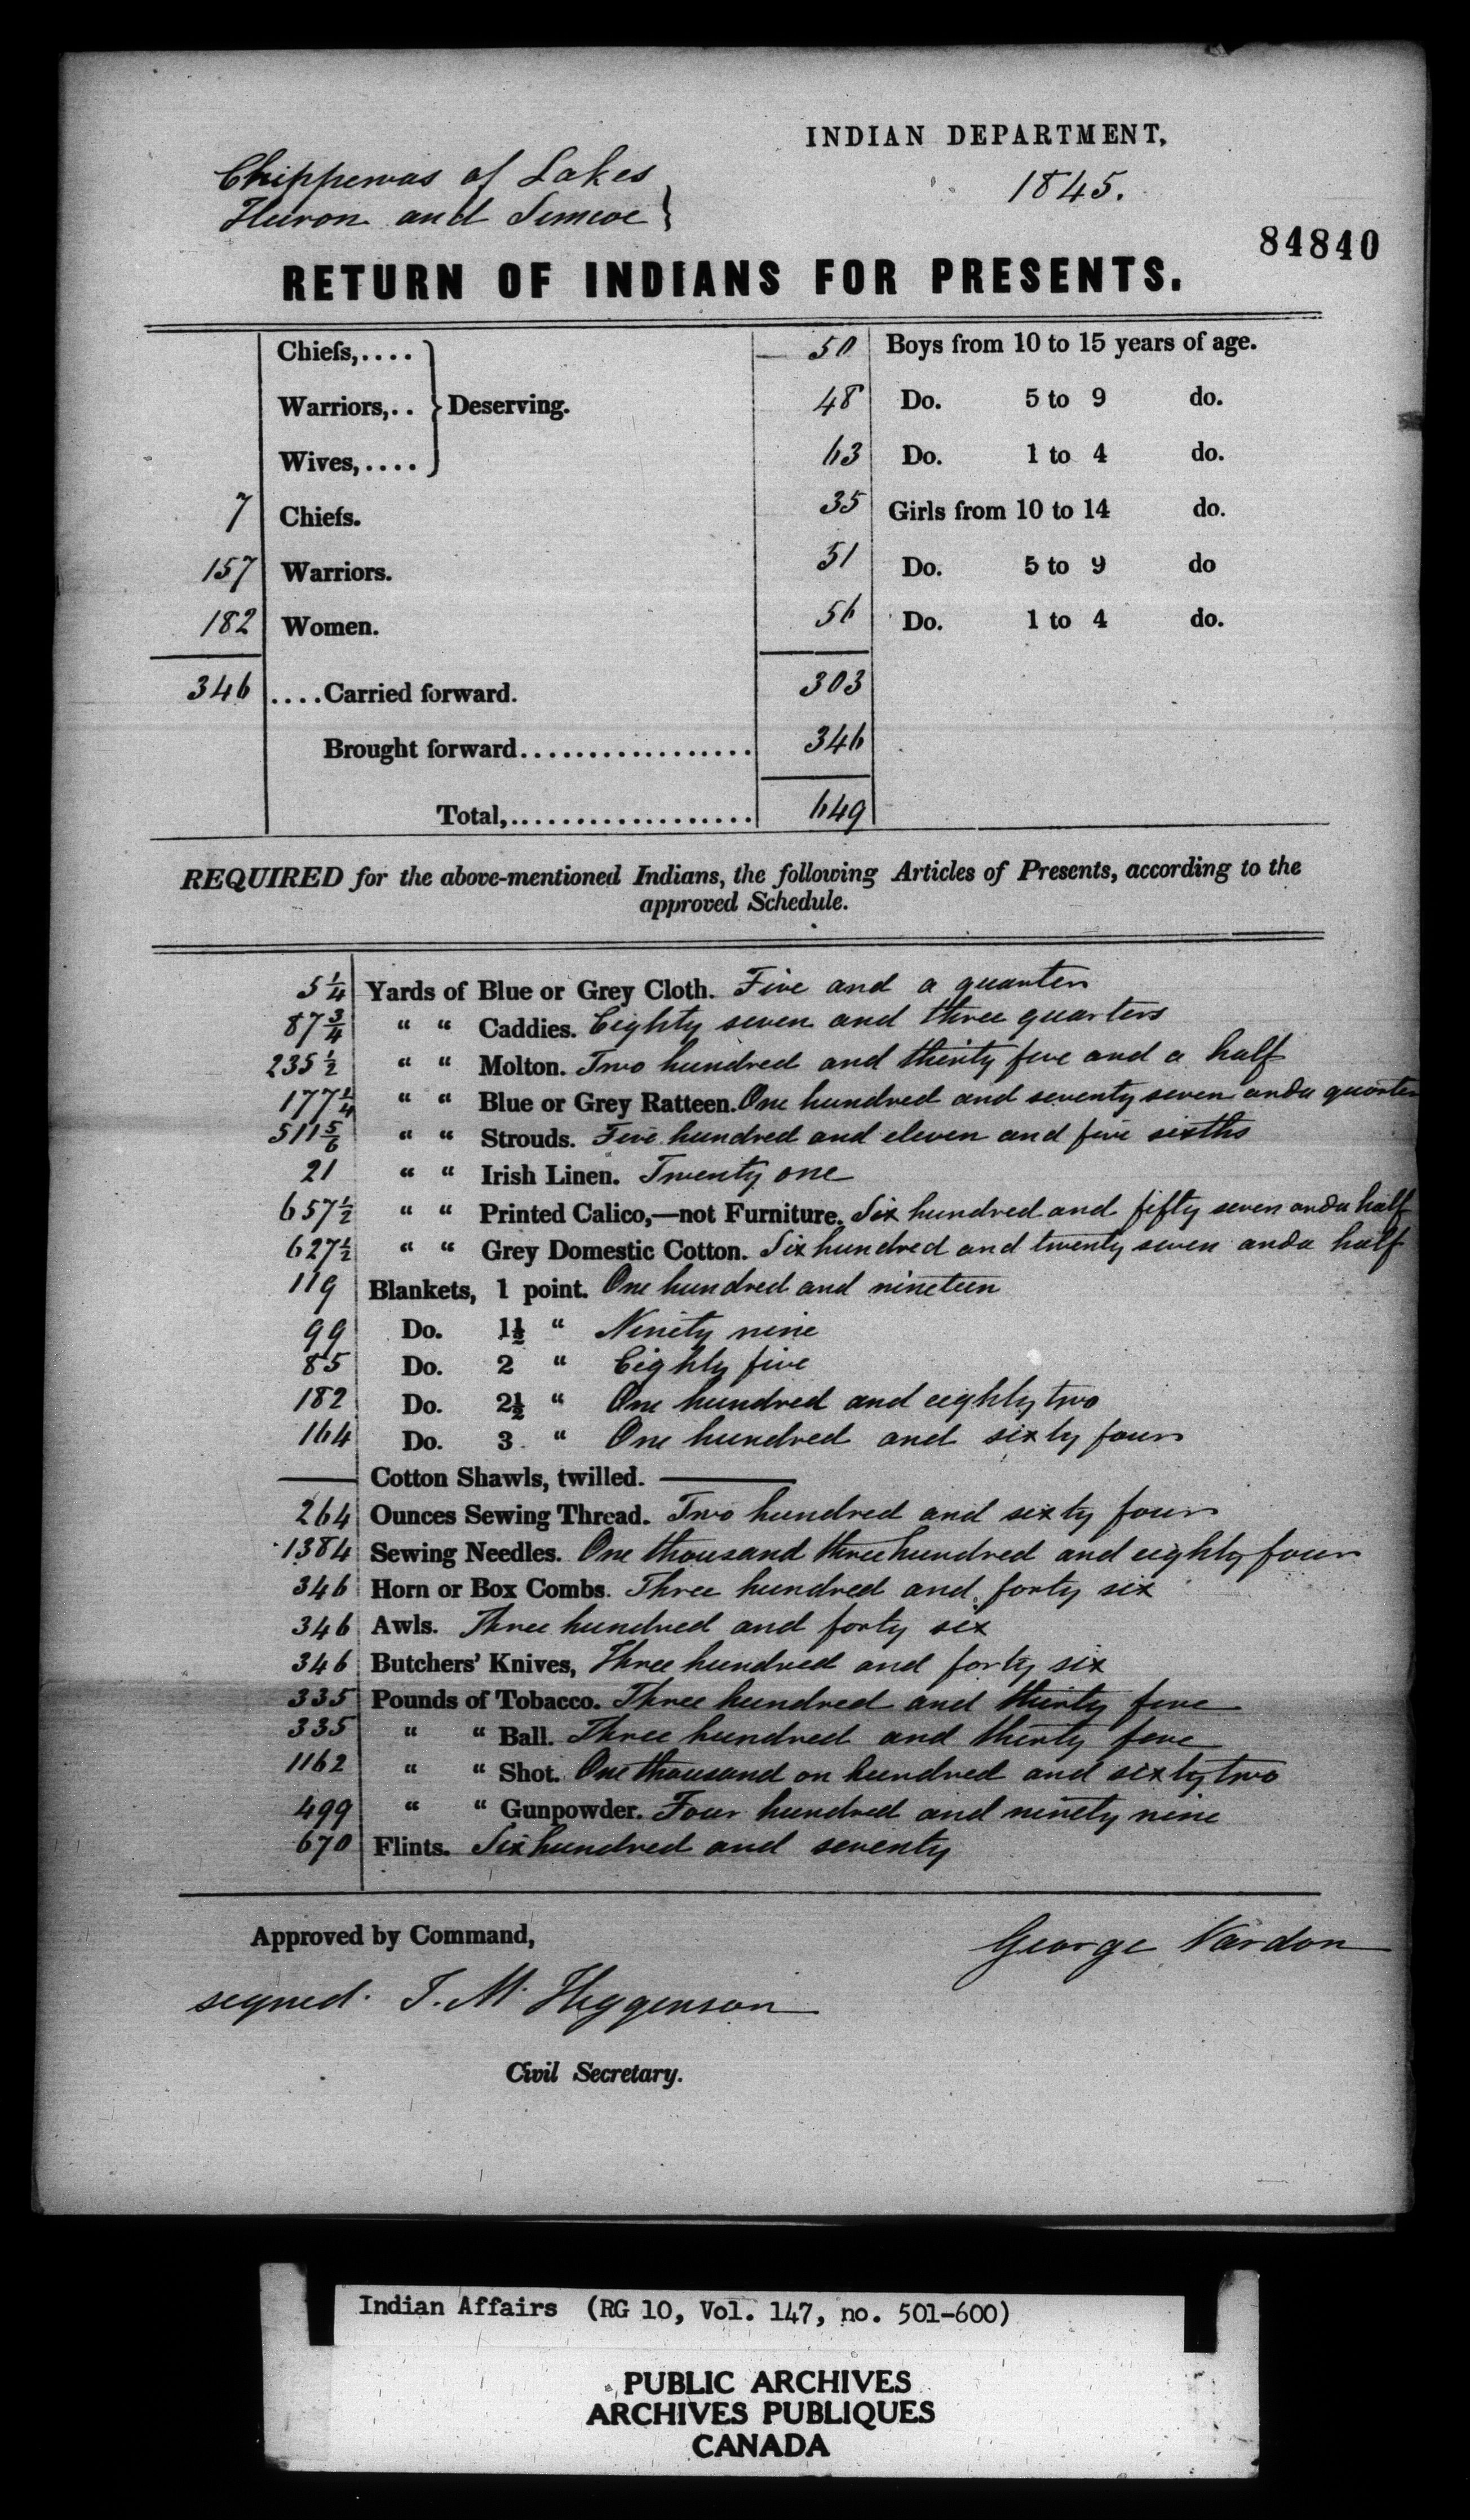 INDIAN DEPARTMENT,
Chippewas of Lakes
1845.
Huron and Simcoe }
84840
RETURN OF INDIANS FOR PRESENTS.
Chiefs,.... } Deserving. 50 Boys from 10 to 15 years of age.
Warriors,.. 48 Do. 5 to 9 do.
Wives,.... 63 Do. 1 to 4 do.
7 Chiefs. 35 Girls from 10 to 14 do.
157 Warriors. 51 Do. 5 to 9 do
182 Women. 56 Do. 1 to 4 do.
346 ....Carried forward. 303
Brought forward.................. 346
Total,................... 649
REQUIRED for the above-mentioned Indians, the following Articles of Presents, according to the
approved Schedule.
5 1/4 Yards of Blue or Grey Cloth. Five and a quarter
87 3/4 " " Caddies. Eighty seven and three quarters
235 1/2 " " Molton. Two hundred and thirty five and a half
177 1/4 " " Blue or Grey Ratteen. One hundred and seventy seven and a quarter
511 5/6 " " Strouds. Five hundred and eleven and five sixths
21 " " Irish Linen. Twenty one
657 1/2 " " Printed Calico,—not Furniture. Six hundred and fifty seven and a half
627 1/2 " " Grey Domestic Cotton. Six hundred and twenty seven and a half
119 Blankets, 1 point. One hundred and nineteen
99 Do. 1½ " Ninety nine
85 Do. 2 " Eighty five
182 Do. 2½ " One hundred and eighty two
164 Do. 3 " One hundred and sixty four
— Cotton Shawls, twilled. —
264 Ounces Sewing Thread. Two hundred and sixty four
1384 Sewing Needles. One thousand three hundred and eighty four
346 Horn or Box Combs. Three hundred and forty six
346 Awls. Three hundred and forty six
346 Butchers' Knives, Three hundred and forty six
335 Pounds of Tobacco. Three hundred and thirty five
335 " " Ball. Three hundred and thirty five
1162 " " Shot. One thousand on hundred and sixty two
499 " " Gunpowder. Four hundred and ninety nine
670 Flints. Six hundred and seventy
Approved by Command,
George Vardon
signed. J. M. Higgenson
Civil Secretary.
Indian Affairs (RG 10, Vol. 147, no. 501-600)
PUBLIC ARCHIVES
ARCHIVES PUBLIQUES
CANADA